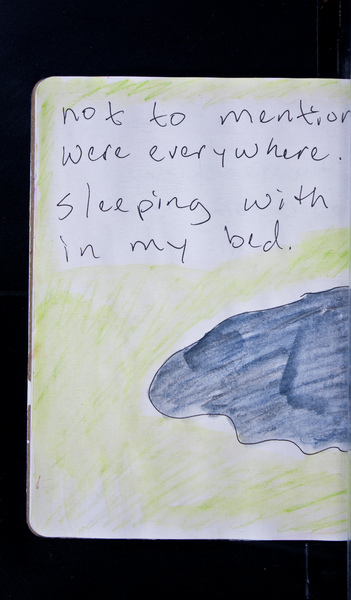 not to mention
were everywhere.
sleeping with
in my bed.